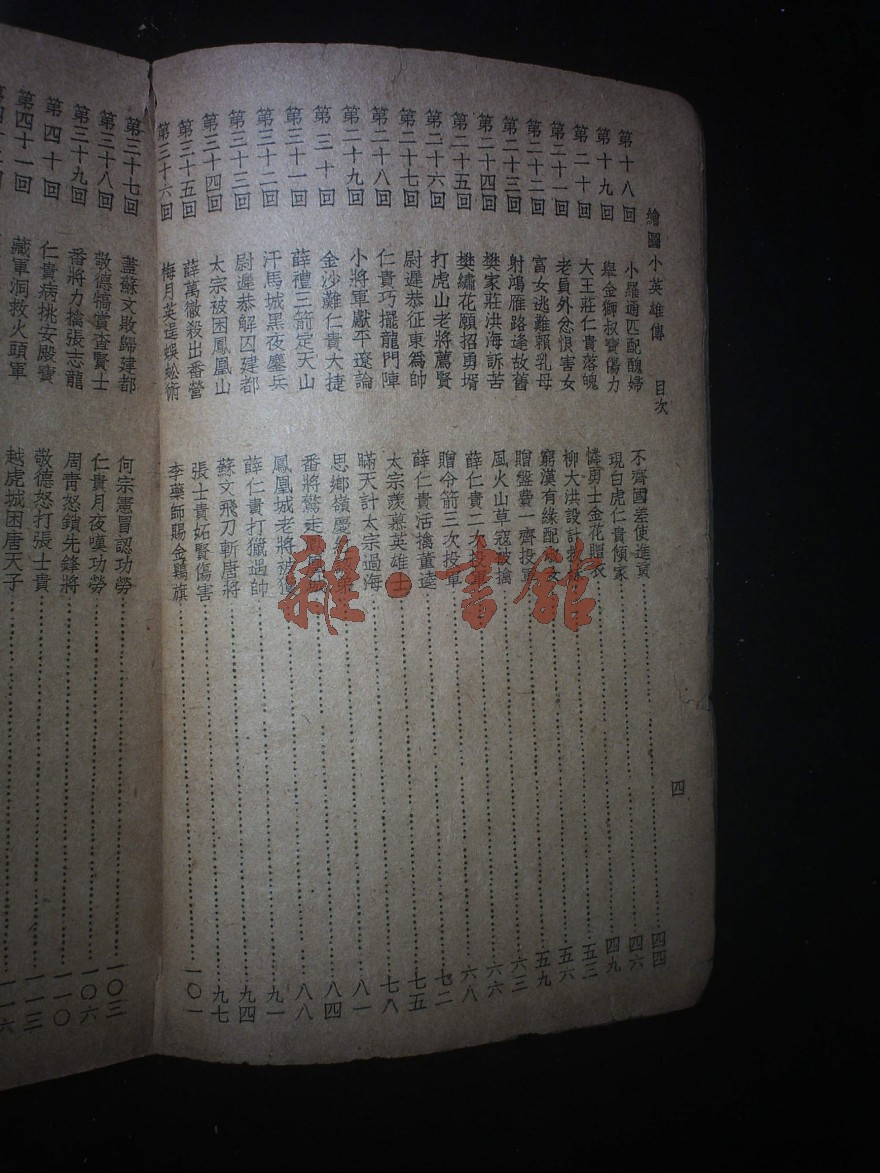 繪圖小英雄傳 目次 四
第十八回 小羅通匹配醜婦 不齊國差使進貢 四四
第十九回 舉金獅叔寶傷力 現白虎仁貴傾家 四六
第二十回 大王莊仁貴落魄 憐勇士金花贈衣 四九
第二十一回 老員外忿恨害女 柳大洪設計 五二
第二十二回 富女逃難賴乳母 窮漢有緣配 女 五六
第二十三回 射鴻雁路逢故舊 贈盤費一齊投軍 五九
第二十四回 樊家莊洪海訴苦 風火山草寇被擒 六三
第二十五回 樊繡花願招勇壻 薛仁貴二次投軍 六六
第二十六回 打虎山老將薦賢 贈令箭三次投軍 六八
第二十七回 尉遲恭征東爲帥 薛仁貴活擒董逵 七二
第二十八回 仁貴巧擺龍門陣 太宗羨慕英雄士 七五
第二十九回 小將軍獻平遼論 瞞天計太宗過海 七八
第三十回 金沙灘仁貴大捷 思鄉嶺慶 八一
第三十一回 薛禮三箭定天山 番將驚走鳳凰城 八四
第三十二回 汗馬城黑夜鏖兵 鳳凰城老將被獲 八八
第三十三回 尉遲恭解囚建都 薛仁貴打獵遇帥 九一
第三十四回 太宗被困鳳凰山 蘇文飛刀斬唐將 九四
第三十五回 薛萬徹殺出番營 張士貴妬賢傷害 九七
第三十六回 梅月英逞蜈蚣術 李藥師賜金鷄旗 一〇一
第三十七回 蓋蘇文敗歸建都 何宗憲冒認功勞 一〇三
第三十八回 敬德犒賞查賢士 仁貴月夜嘆功勞 一〇六
第三十九回 番將力擒張志龍 周靑怒鎖先鋒將 一一〇
第四十回 仁貴病挑安殿寶 敬德怒打張士貴 一一三
第四十一回 藏軍洞救火頭軍 越虎城困唐天子 一一六
雜·書館